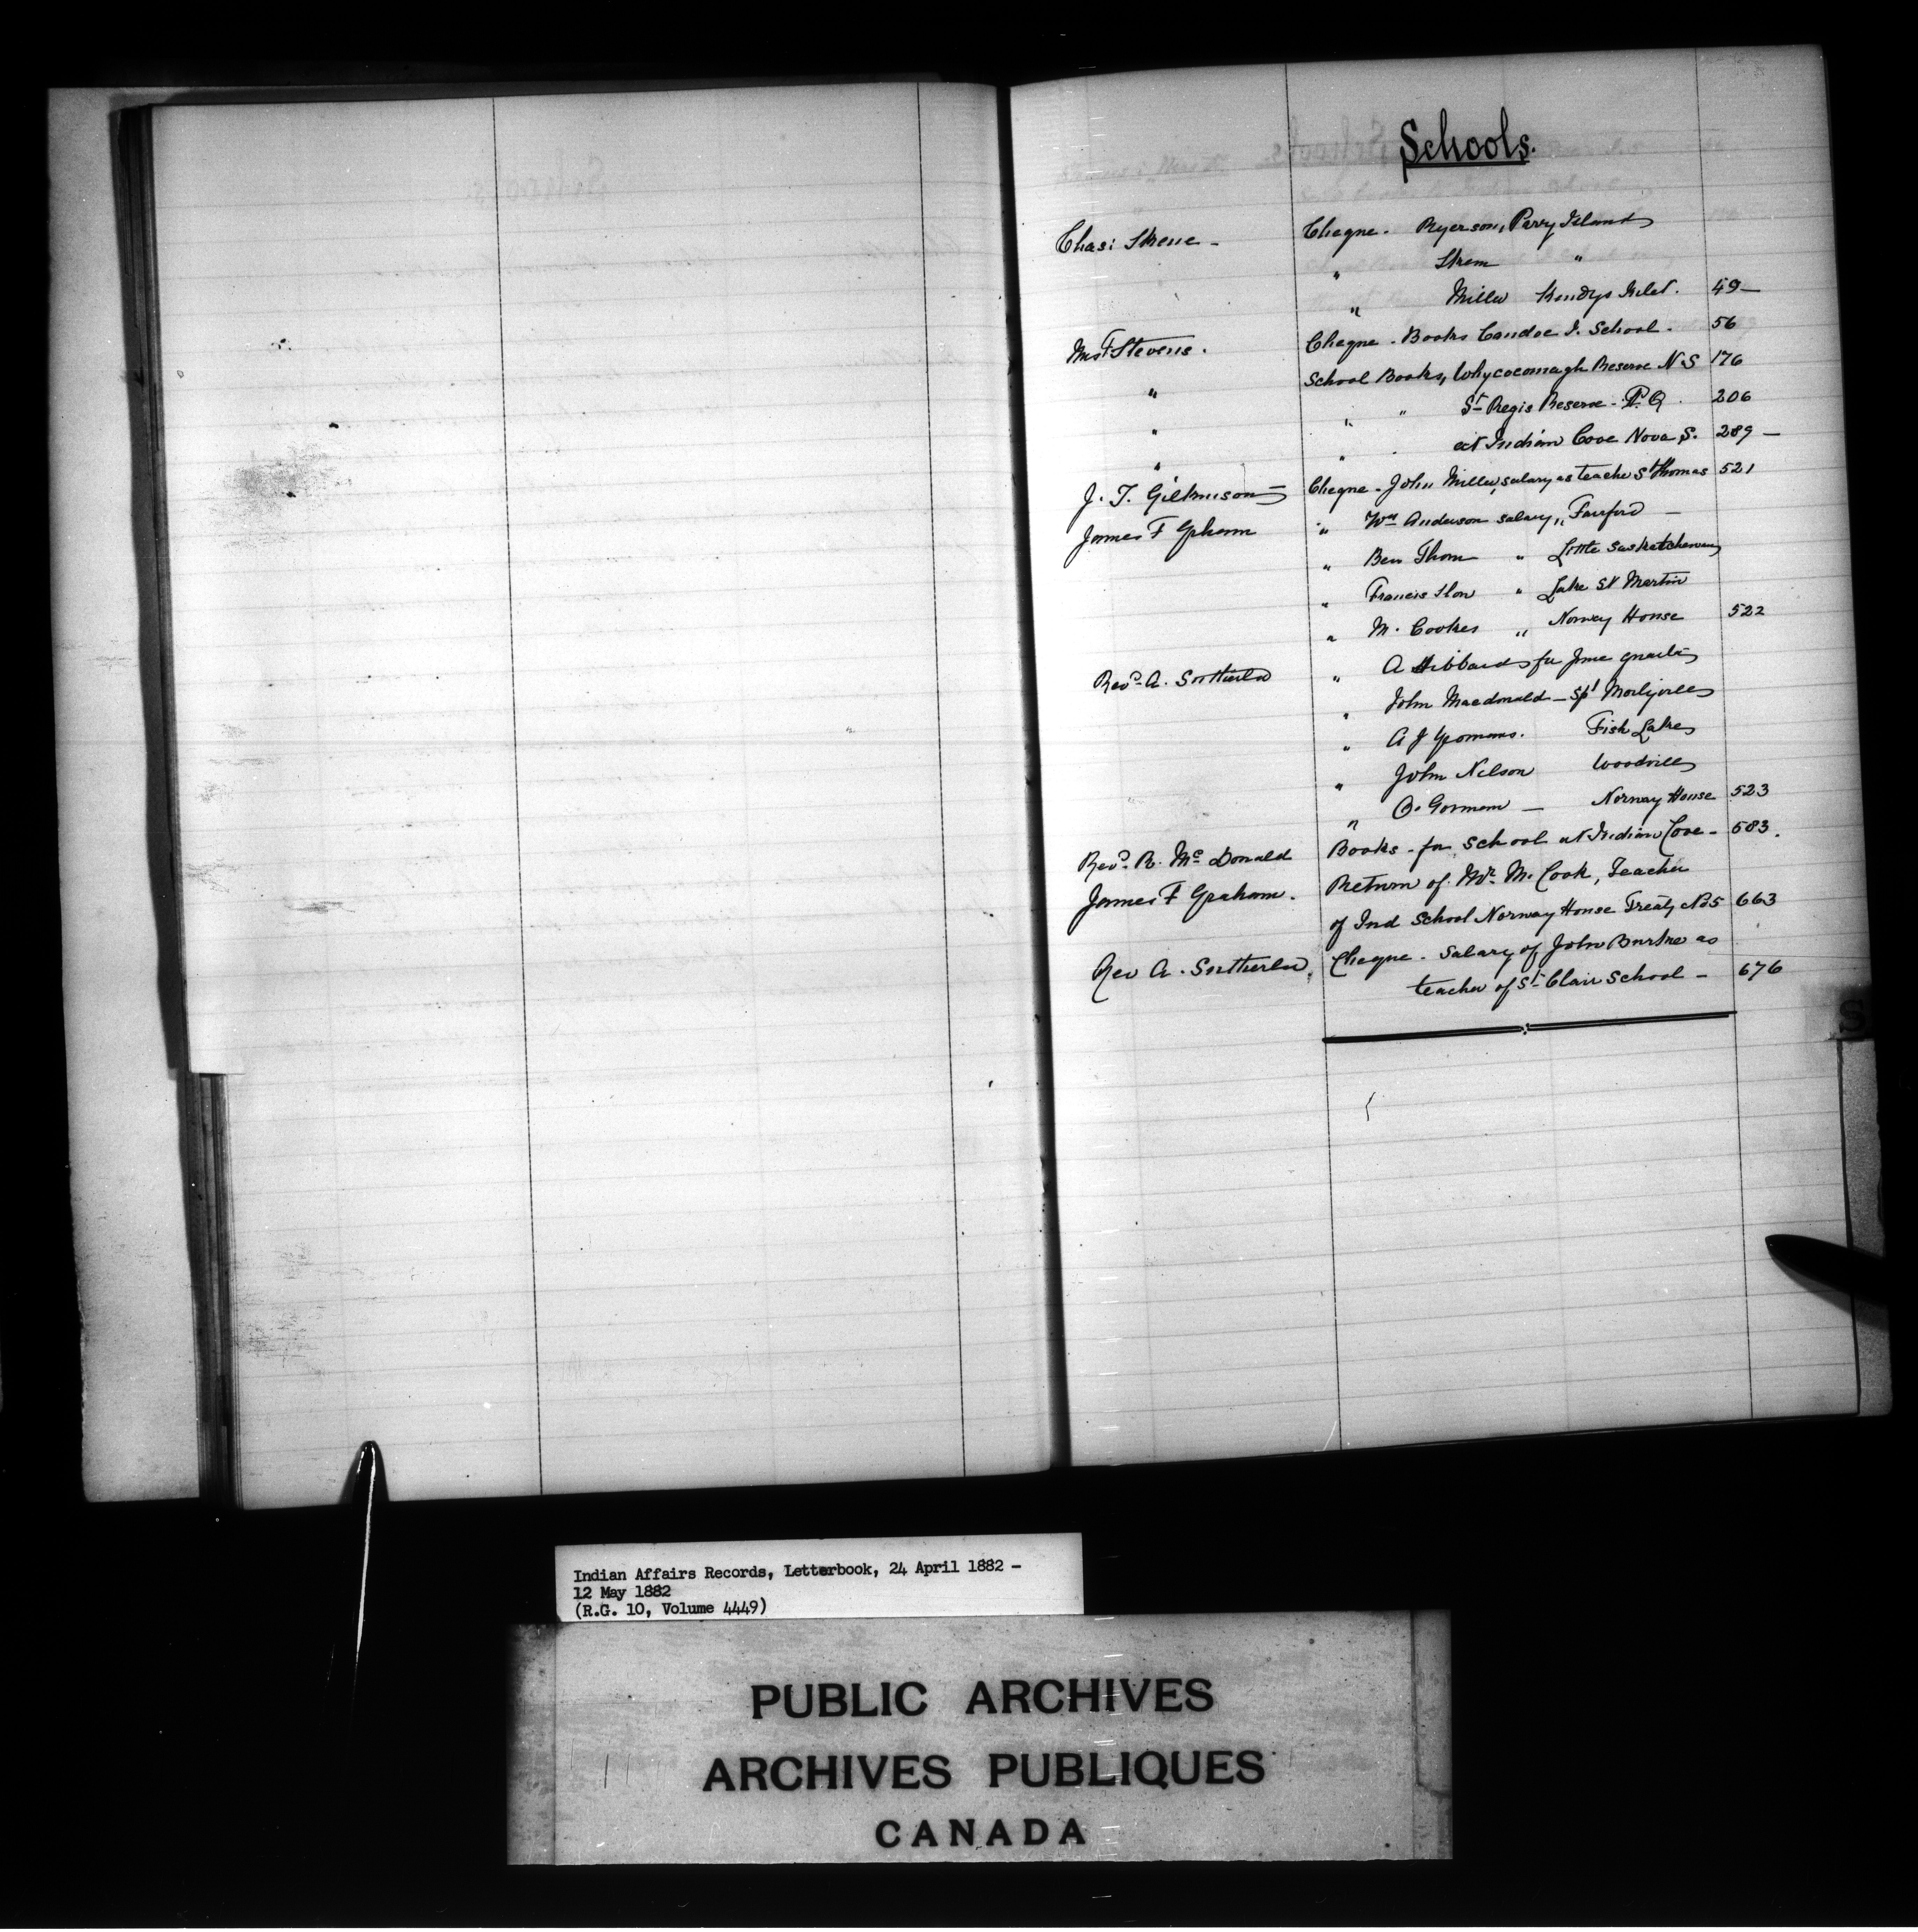 Schools.
Chas: Skene - Cheque. Ryerson, Parry Island
" Skene "
" Miller Hendys Inlet. 49 —
Miss F Stevens. Cheque - Books Caradoc I. School. 56
" School Books, Whycocomagh Reserve N.S 176
" " " St Regis Reserve - P.Q. 206
" " at Indian Cove Nova S. 289 —
J. T. Gilkinson Cheque - John Miller, salary as teacher St Thomas 521
James F Graham " Wm Anderson salary, " Fairford —
" Ben Thom " Little Saskatchewan
" Francis Storr " Lake St Martin
" M. Cookes " Norway House 522
Revd. A. Sutherland " A Hibbard for June quarter
" John Macdonald — Sp' Morleyville
" A J Fish Lake
" John Nelson Woodville
" O. German — Norway House 523
Revd. R. Mc Donald Books - for School at Indian Cove - 583.
James F Graham. Return of Mr. M. Cook, Teacher
of Ind School Norway House Treaty No 5 663
Rev A. Sutherland, Cheque - Salary of John Burke as
teacher of St Clair School - 676
S
Indian Affairs Records, Letterbook, 24 April 1882 -
12 May 1882
(R.G. 10, Volume 4449)
PUBLIC ARCHIVES
ARCHIVES PUBLIQUES
CANADA